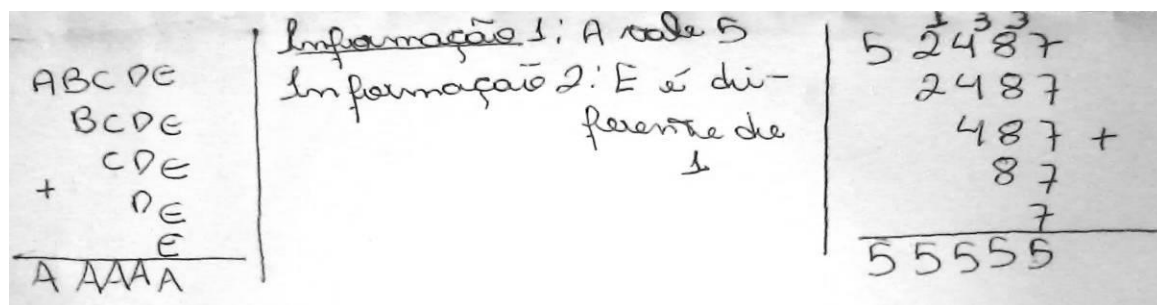 ABCDE
BCDE
CDE
+ DE
E
A AAAA
Informação 1: A vale 5
Informação 2: E é di-
ferente de
1
1 3 3
5 2487
2487
487 +
87
7
55555